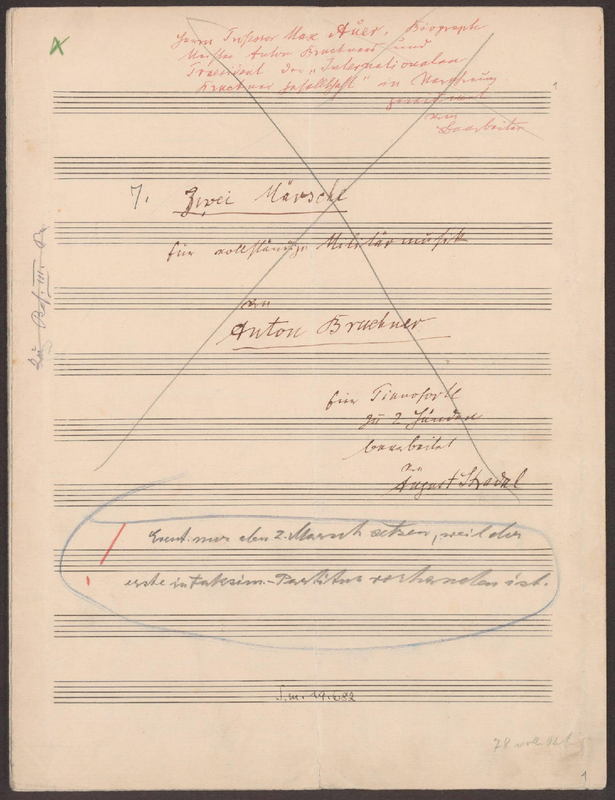 Herrn Professor Max Auer, Biograph
Meister Anton Bruckners und
Praesident der „Internationalen
Bruckner Gesellschaft" in Verehrung
gewidmet
vom
Bearbeiter
7. Zwei Märsche
für vollständige Militärmusik
von
Anton Bruckner
für Pianoforte
zu 2 Händen
bearbeitet
von
August Stradal
Event. nur den 2. Marsch setzen, weil der
erste in Faksim.-Partitur vorhanden ist.
S.m. 19.682
78
1